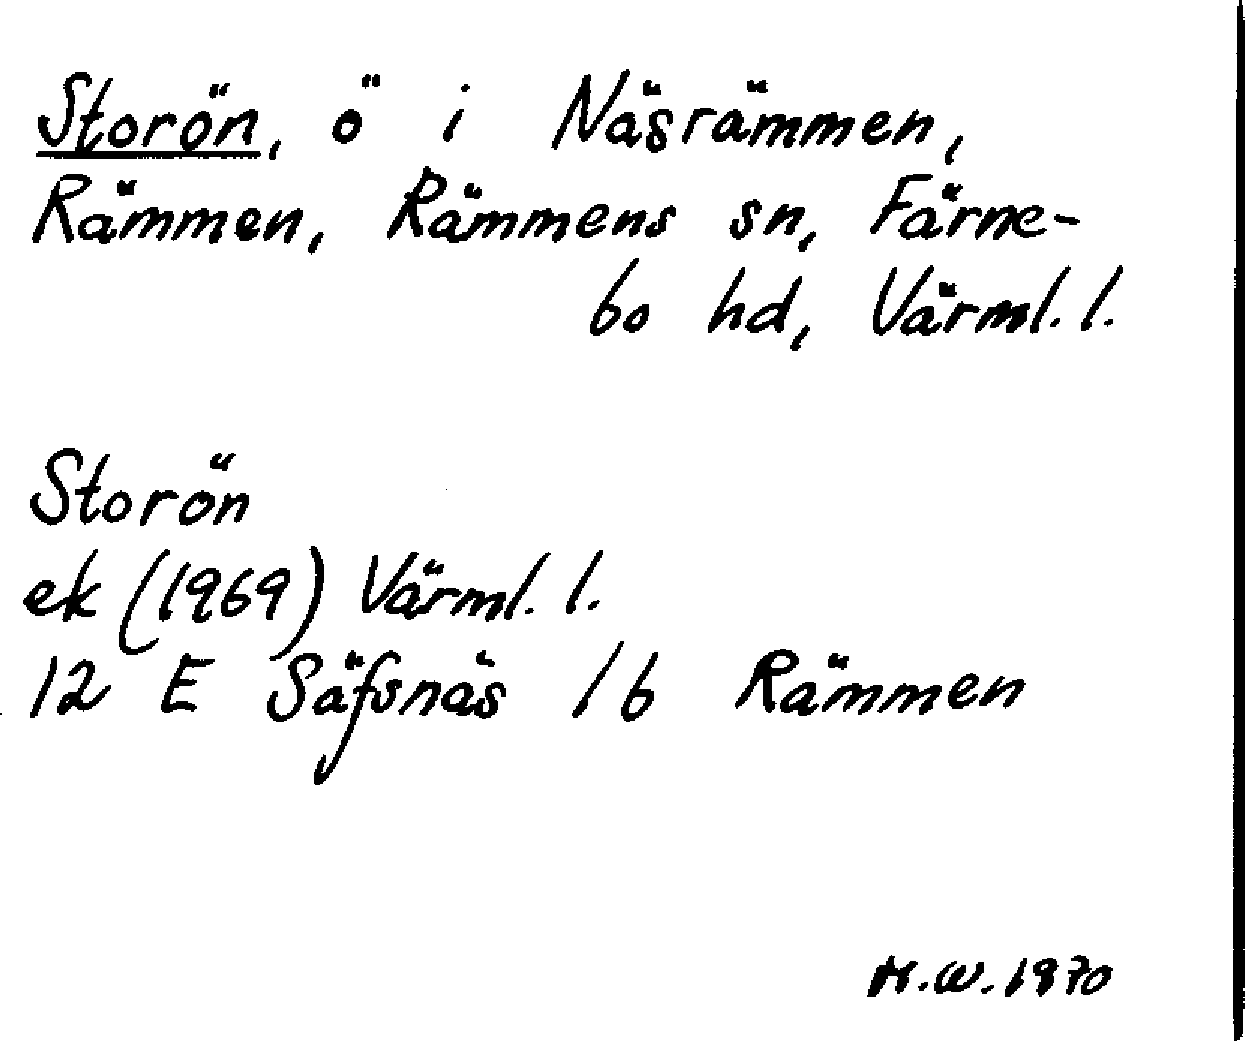 Storön, ö i Näsrämmen,
Rämmen, Rämmens sn, Färne-
bo hd, Värml. l.
Storön
ek (1969) Värml. l.
12 E Säfsnäs / b Rämmen
M.W. 1970